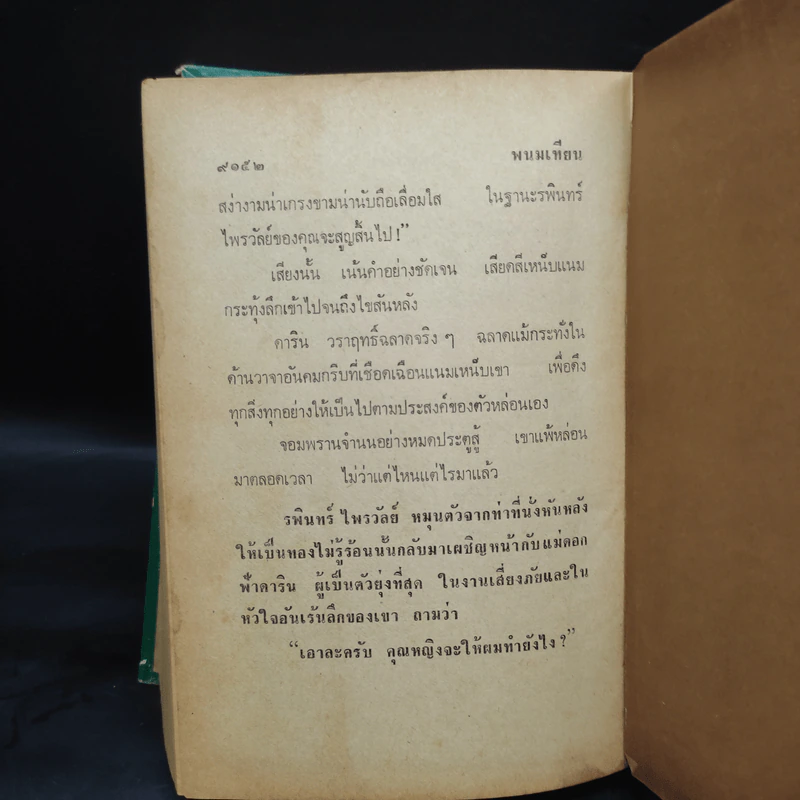 ๙๑๕๒ พนมเทียน
สง่างามน่าเกรงขามน่านับถือเลื่อมใส ในฐานะรพินทร์
ไพรวัลย์ของคุณจะสูญสิ้นไป!”
เสียงนั้น เน้นคำอย่างชัดเจน เสียดสีเหน็บแนม
กระทุ้งลึกเข้าไปจนถึงไขสันหลัง
ดาริน วราฤทธิ์ฉลาดจริง ๆ ฉลาดแม้กระทั่งใน
ด้านวาจาอันคมกริบที่เชือดเฉือนแนมเหน็บเขา เพื่อดึง
ทุกสิ่งทุกอย่างให้เป็นไปตามประสงค์ของตัวหล่อนเอง
จอมพรานจำนนอย่างหมดประตูสู้ เขาแพ้หล่อน
มาตลอดเวลา ไม่ว่าแต่ไหนแต่ไรมาแล้ว
รพินทร์ ไพรวัลย์ หมุนตัวจากท่าที่นั่งหันหลัง
ให้เป็นทองไม่รู้ร้อนนั้นกลับมาเผชิญหน้ากับแม่ดอก
ฟ้าดาริน ผู้เป็นตัวยุ่งที่สุด ในงานเสี่ยงภัยและใน
หัวใจอันเร้นลึกของเขา ถามว่า
“เอาละครับ คุณหญิงจะให้ผมทำยังไง?”